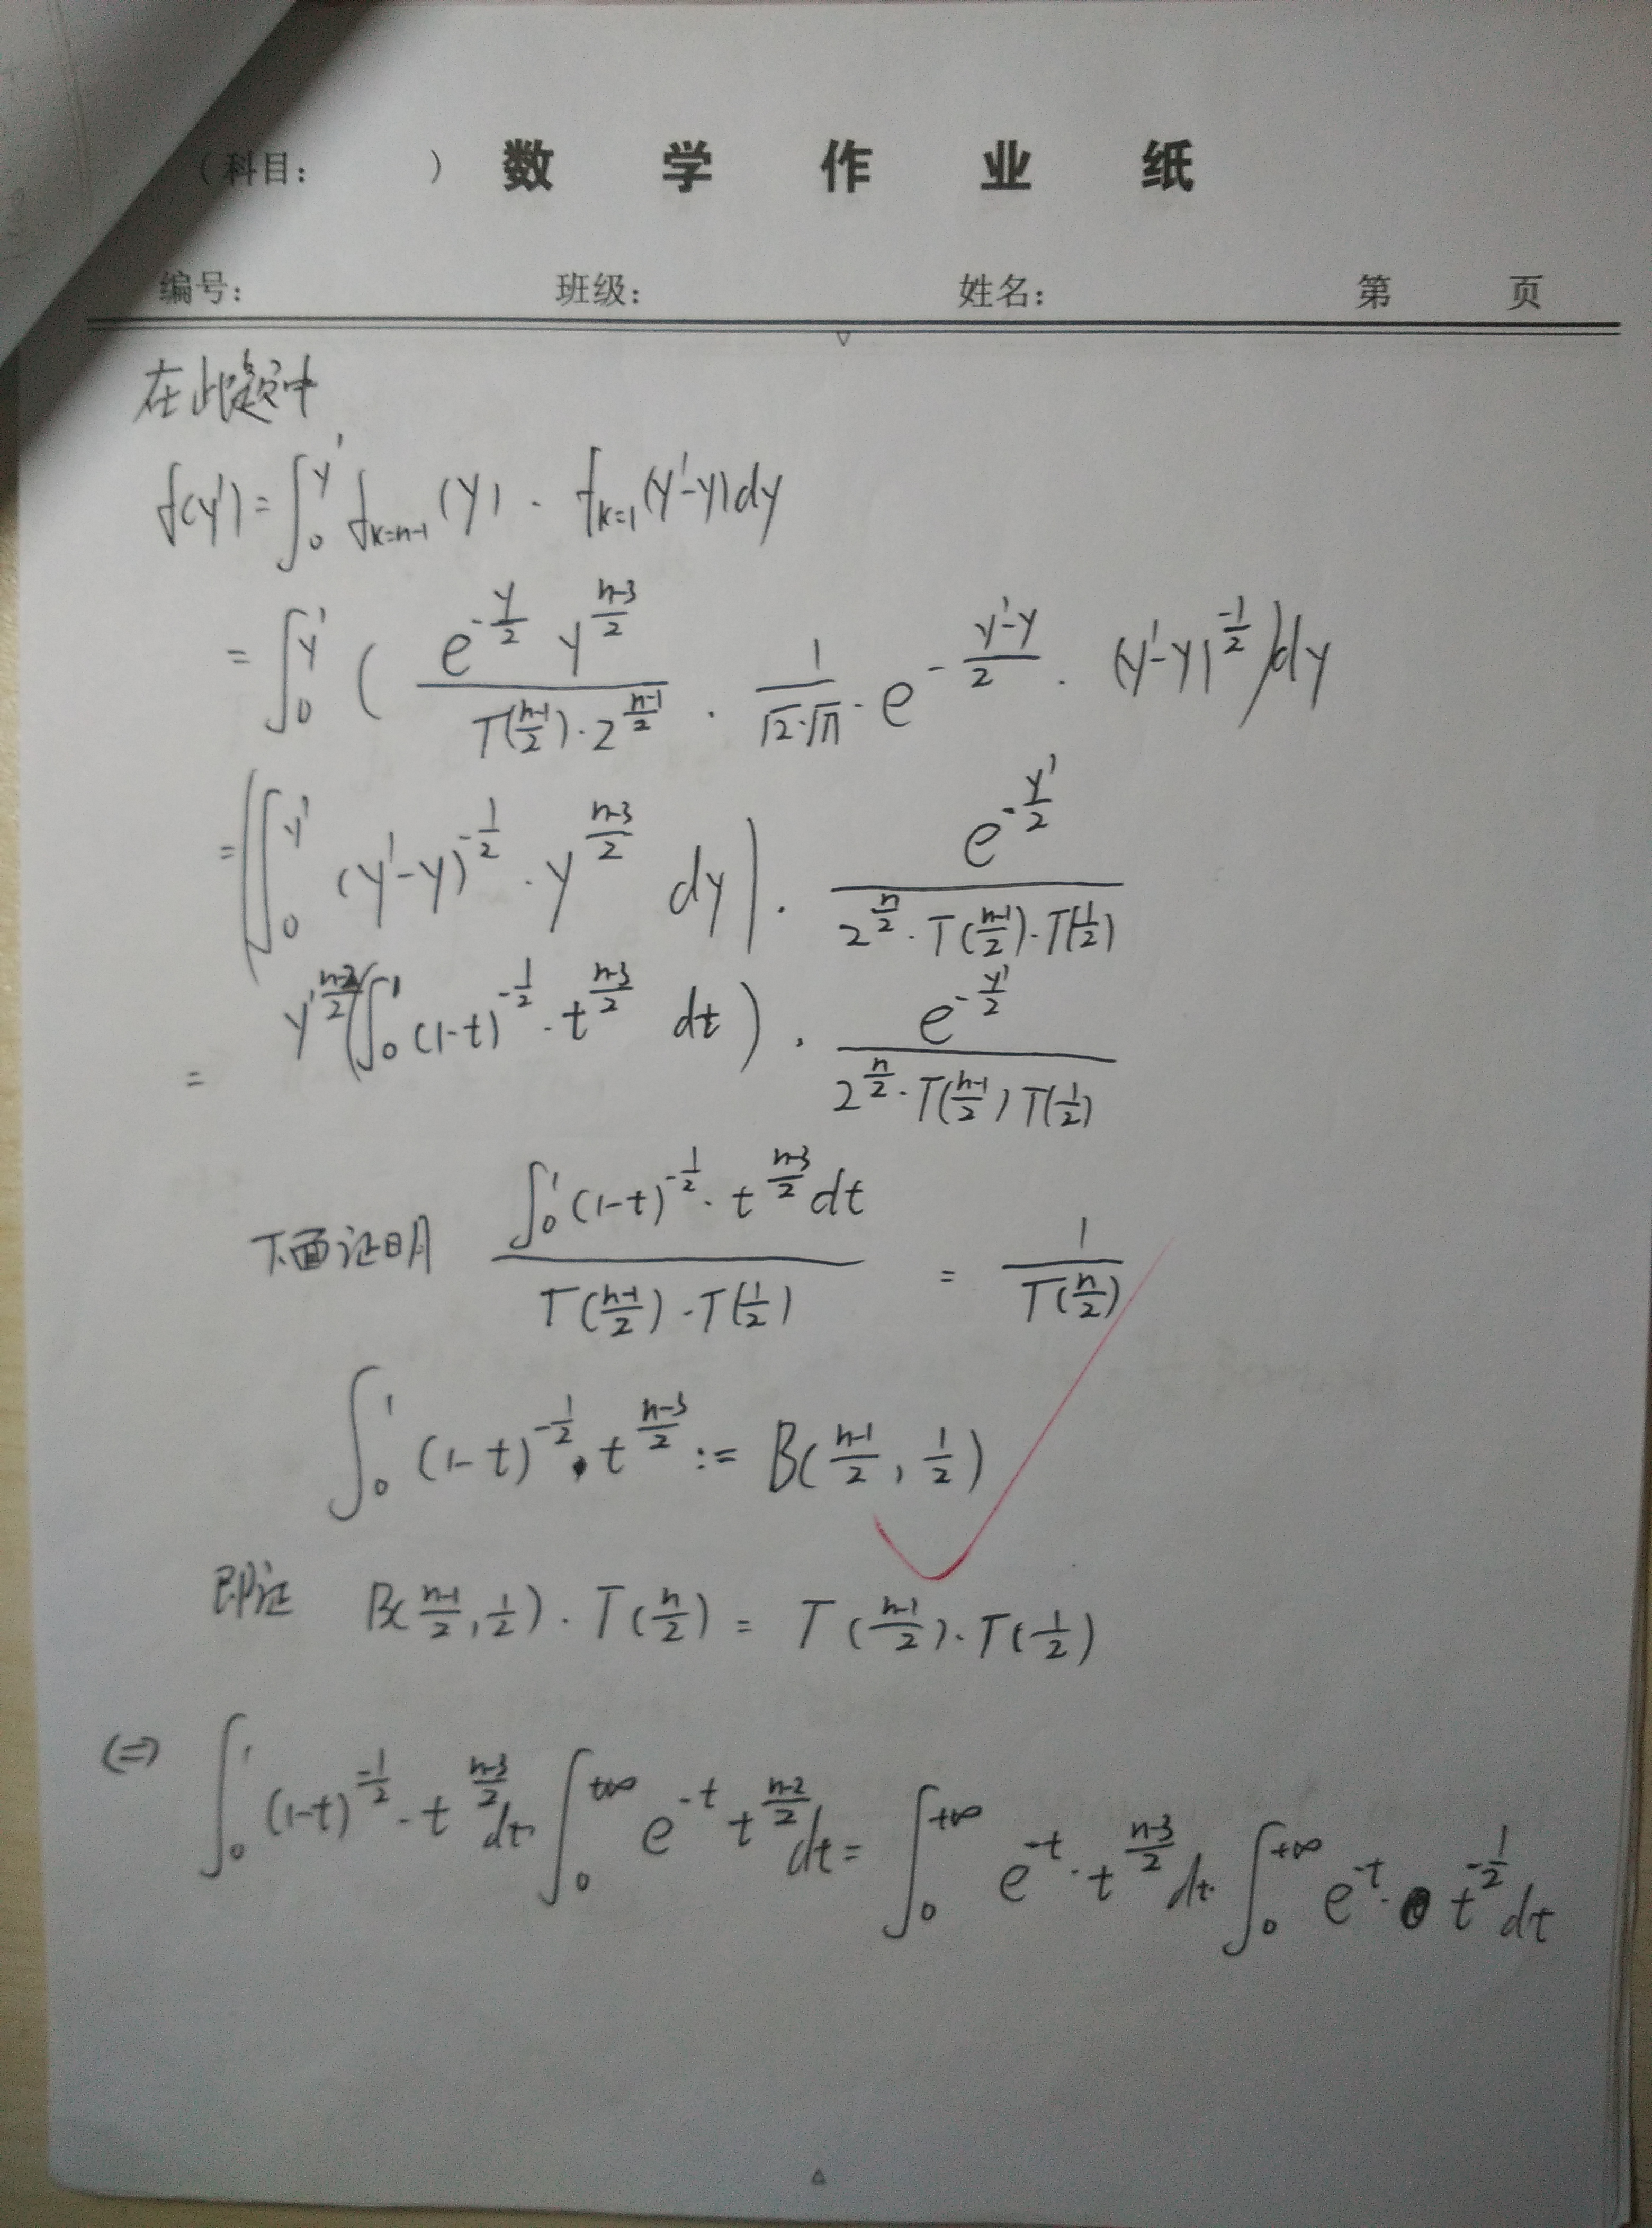 （科目：　　）数 学 作 业 纸
编号：　班级：　姓名：　第　页
在此题中
f(y') = ∫_0^{y'} f_{k=n-1}(y) · f_{k=1}(y'-y)dy
= ∫_0^{y'} ( \frac{e^{-\frac{y}{2}} y^{\frac{n-3}{2}}}{Γ(\frac{n-1}{2}) · 2^{\frac{n-1}{2}}} · \frac{1}{\sqrt{2}·\sqrt{π}} · e^{-\frac{y'-y}{2}} · (y'-y)^{-\frac{1}{2}} )dy
= ( ∫_0^{y'} (y'-y)^{-\frac{1}{2}} · y^{\frac{n-3}{2}} dy ) · \frac{e^{-\frac{y'}{2}}}{2^{\frac{n}{2}} · Γ(\frac{n-1}{2}) · Γ(\frac{1}{2})}
= y'^{\frac{n-2}{2}} ( ∫_0^1 (1-t)^{-\frac{1}{2}} · t^{\frac{n-3}{2}} dt ) · \frac{e^{-\frac{y'}{2}}}{2^{\frac{n}{2}} · Γ(\frac{n-1}{2}) Γ(\frac{1}{2})}
下面证明 \frac{∫_0^1 (1-t)^{-\frac{1}{2}} · t^{\frac{n-3}{2}} dt}{Γ(\frac{n-1}{2}) · Γ(\frac{1}{2})} = \frac{1}{Γ(\frac{n}{2})}
∫_0^1 (1-t)^{-\frac{1}{2}} · t^{\frac{n-3}{2}} := B(\frac{n-1}{2}, \frac{1}{2})
即证 B(\frac{n-1}{2}, \frac{1}{2}) · Γ(\frac{n}{2}) = Γ(\frac{n-1}{2}) · Γ(\frac{1}{2})
⇔ ∫_0^1 (1-t)^{-\frac{1}{2}} · t^{\frac{n-3}{2}} dt · ∫_0^{+∞} e^{-t} t^{\frac{n-2}{2}} dt = ∫_0^{+∞} e^{-t} · t^{\frac{n-3}{2}} dt · ∫_0^{+∞} e^{-t} · t^{-\frac{1}{2}} dt